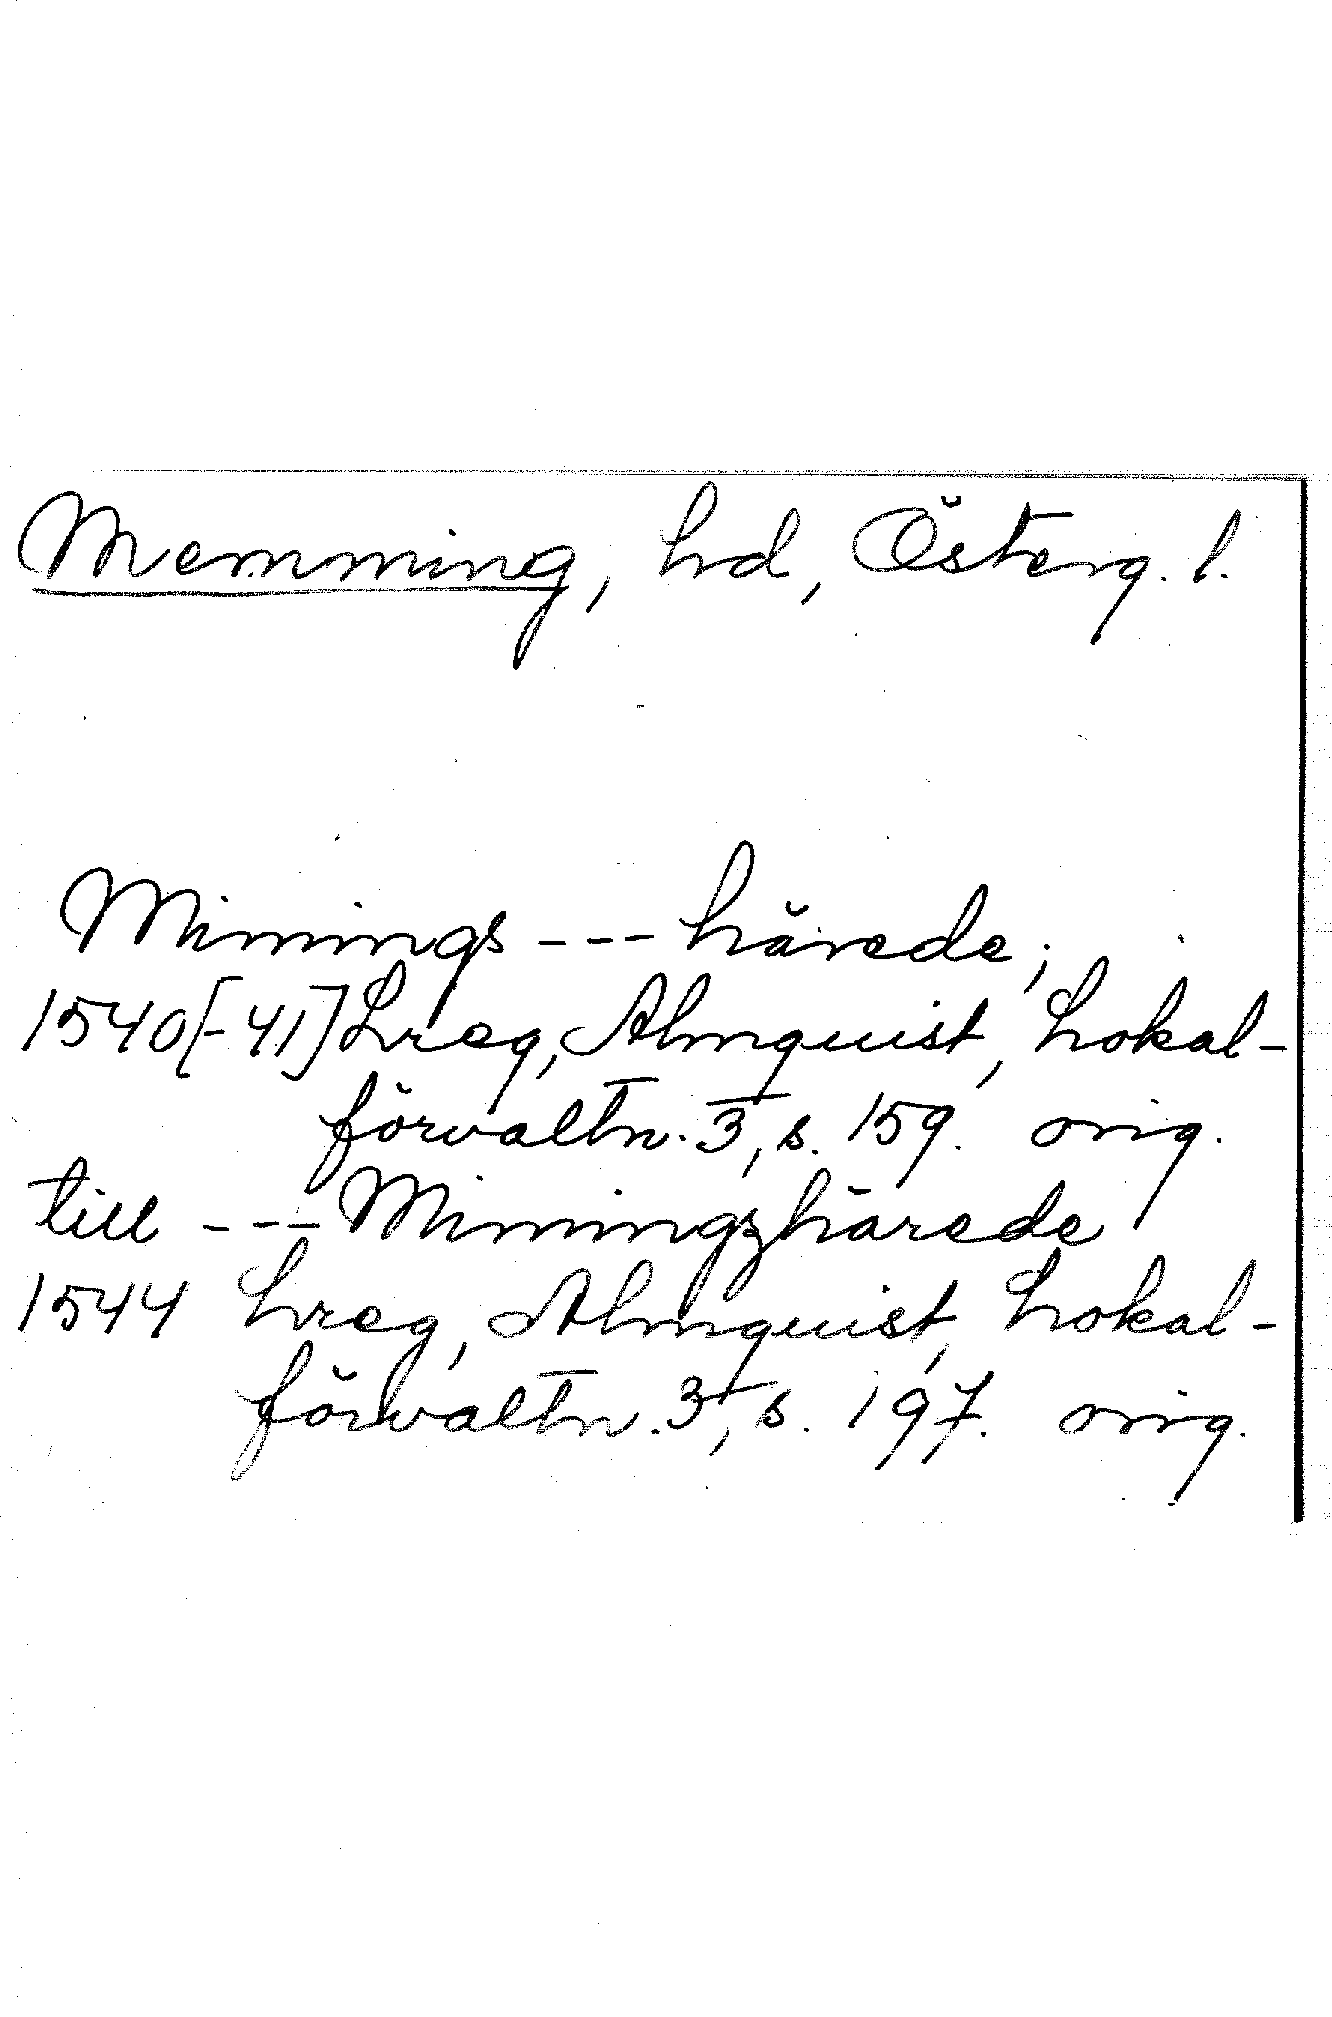 Memming, hd, Österg. l.
Minings --- härede;
1540[-41] Lreg, Almquist, Lokal-
förvaltn. 3, s. 159. orig.
till --- Miningzhärede
1544 Lreg, Almquist, Lokal-
förvaltn. 3, s. 197. orig.